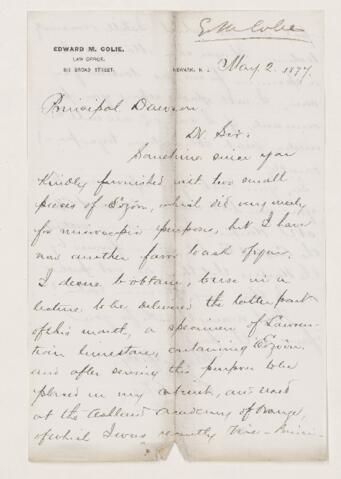 E M Colie
EDWARD M. COLIE.
LAW OFFICE,
BROAD STREET.
NEWARK, N. J. May 2. 1877.
Principal Dawson.
Dr Sir:
Sometime since you
kindly furnished me two small
pieces of Eozöon, which did very nicely
for microscopic purpose, but I have
now another favor to ask of you.
I desire to obtain, to use in a
lecture to be delivered the latter part
of this month, a specimen of Lauren-
tian limestone, containing Eozöon
and after serving this purpose to be
placed in my cabinet,
at the Academy of Orange,
of which I was recently